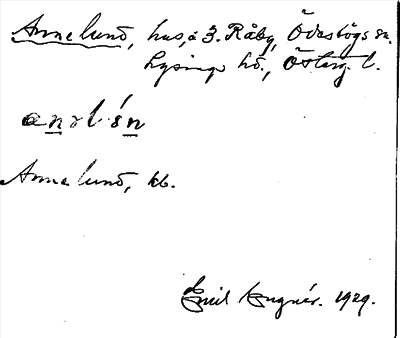 Annelund, hus, å 3. Råby, Ödeshögs sn.
Lysings hd., Österg. l.
Annelund, kb.
Emil Lugnér. 1929.